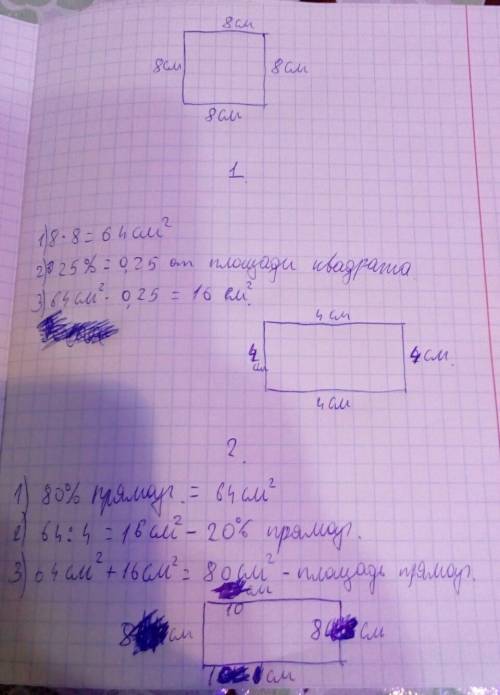 8см
8см 8см
8см
1.
1) 8·8=64см²
2) 25%=0,25 от площади квадрата
3) 64см²·0,25=16 см²
4 см
4 см 4 см.
4 см
2.
1) 80% прямоуг.=64см²
2) 64:4=16см²-20% прямоуг.
3) 64см²+16см²=80см²-площадь прямоуг.
см
10
8 см 8 см
10 см